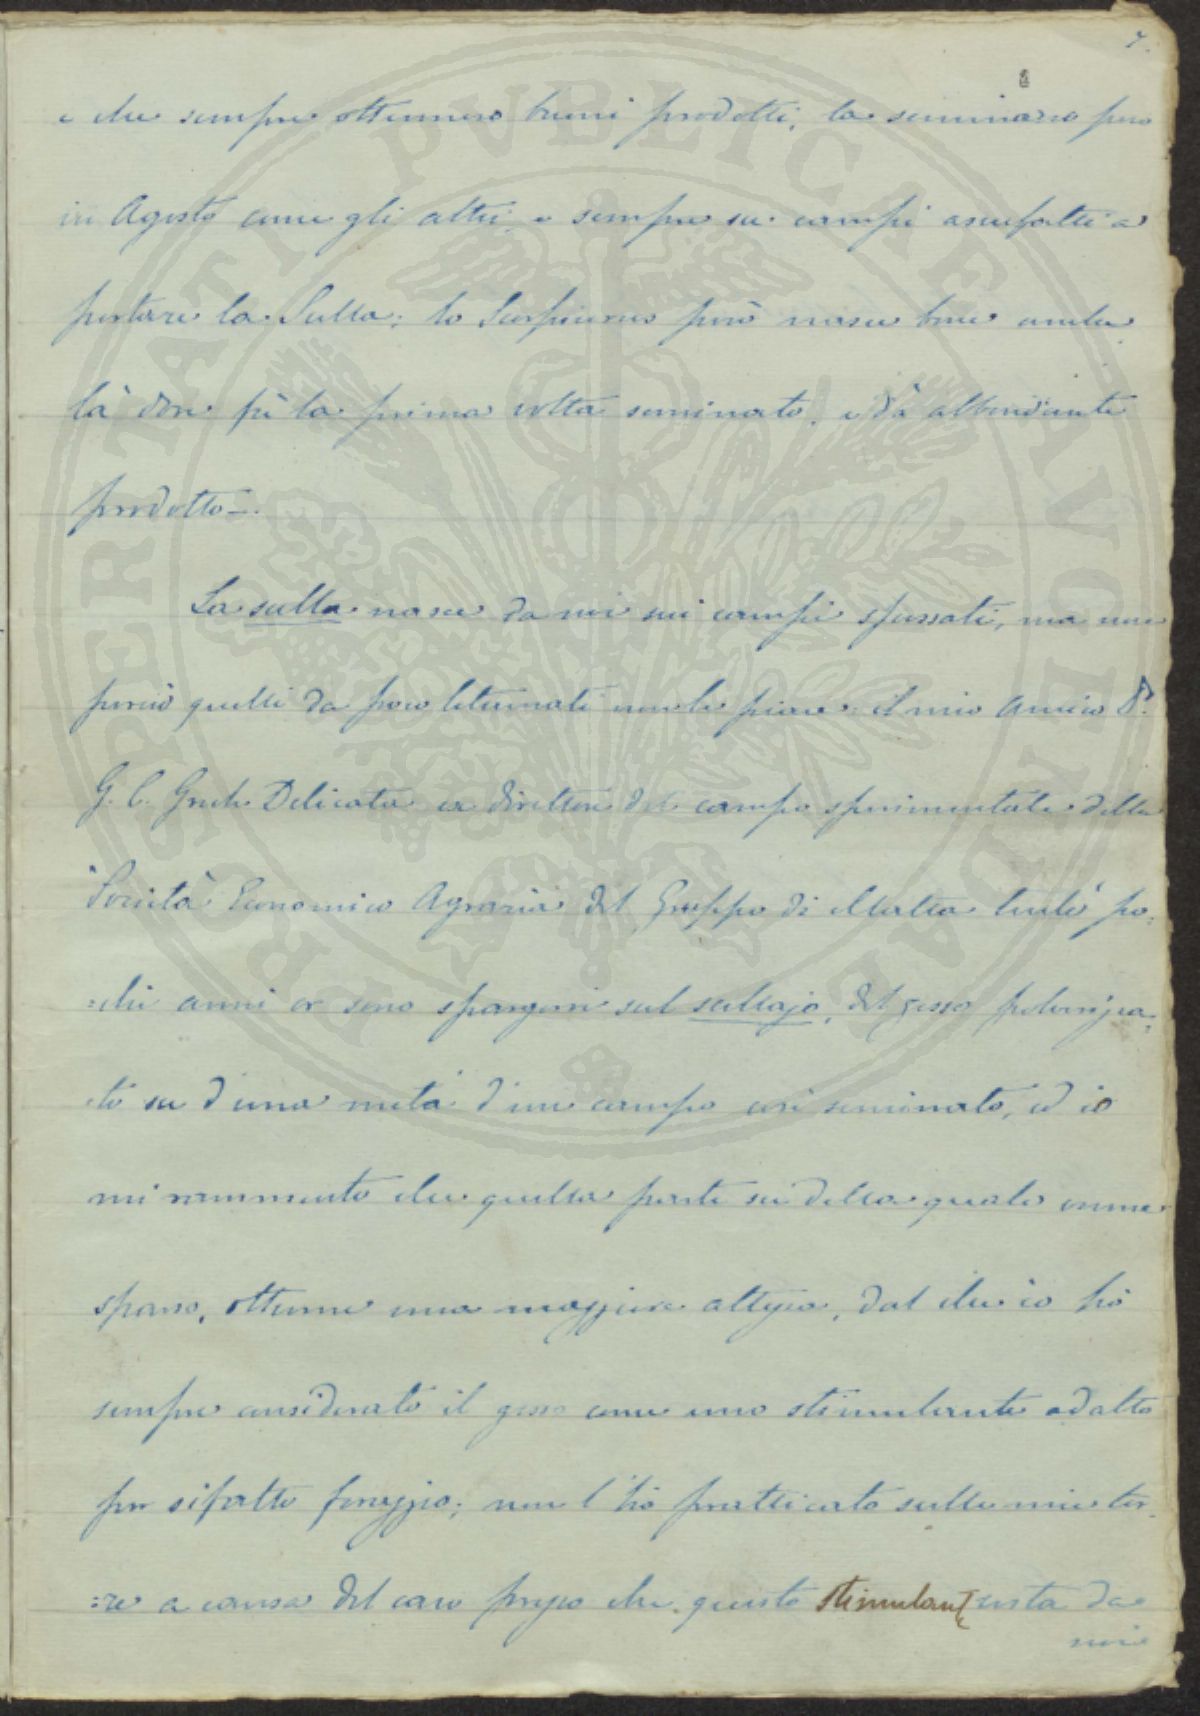 7.
e che sempre ottennero buoni prodotti, la seminano pero
in Agosto come gli altri e sempre su campi assuefatti a
portare la Sulla; lo Scorpiurus però nasce bene anche
là dove fù la prima volta seminato, e dà abbondante
prodotto.
La sulla nasce da noi sui campi spossati, ma non
perciò quelli da poco letamati non le piace: il mio amico Dr.
G. C. Grech Delicata ex direttore del campo sperimentale della
Società Economico Agraria del Gruppo di Malta tentò po=
=chi anni or sono spargere sul sullajo, del gesso polverizza=
to su d'una metà d'un campo così seminato, ed io
mi rammento che quella parte su della quale venne
sparso, ottenne una maggiore altezza, dal che io hò
sempre considerato il gesso come uno stimulante adatto
per sifatto foraggio; non l'hò pratticato sulle mie ter=
=re a causa del caro prezzo che questo stimulante costa da
noi
PROSPERITATI PVBLICAE AVGENDAE